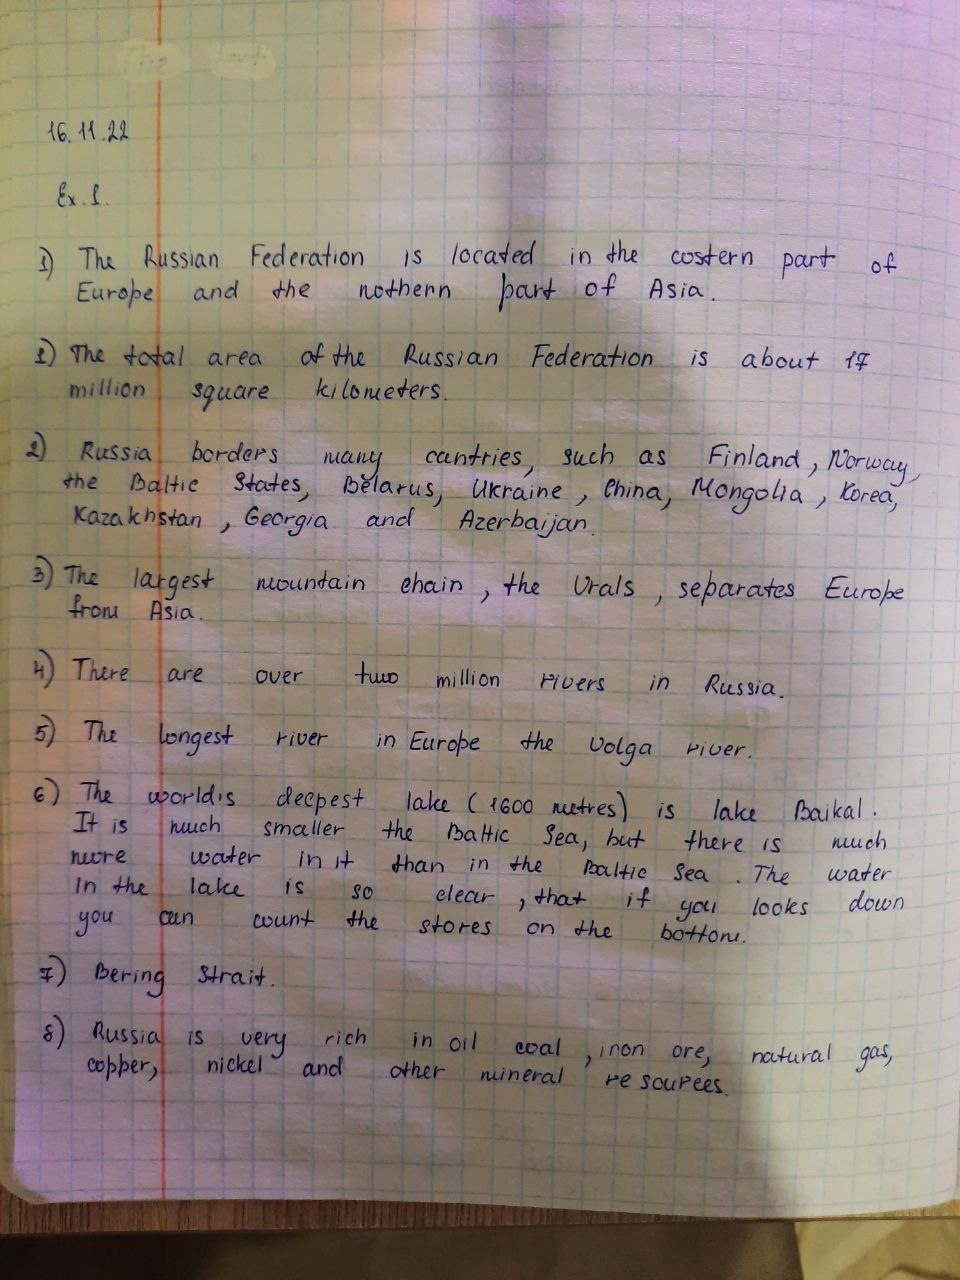 16.11.22
Ex. 1.
1) The Russian Federation is located in the costern part of
Europe and the nothern part of Asia.
1) The total area of the Russian Federation is about 17
million square kilometers.
2) Russia borders many cantries, such as Finland, Norway,
the Baltic States, Belarus, Ukraine, China, Mongolia, Korea,
Kazakhstan, Georgia and Azerbaijan.
3) The largest mountain chain, the Urals, separates Europe
from Asia.
4) There are over two million rivers in Russia.
5) The longest river in Europe the Volga river.
6) The world's deepest lake (1600 metres) is lake Baikal.
It is much smaller the Baltic Sea, but there is much
more water in it than in the Baltic Sea. The water
in the lake is so clear, that if you looks down
you can count the stores on the bottom.
7) Bering Strait.
8) Russia is very rich in oil coal, iron ore, natural gas,
copper, nickel and other mineral resources.